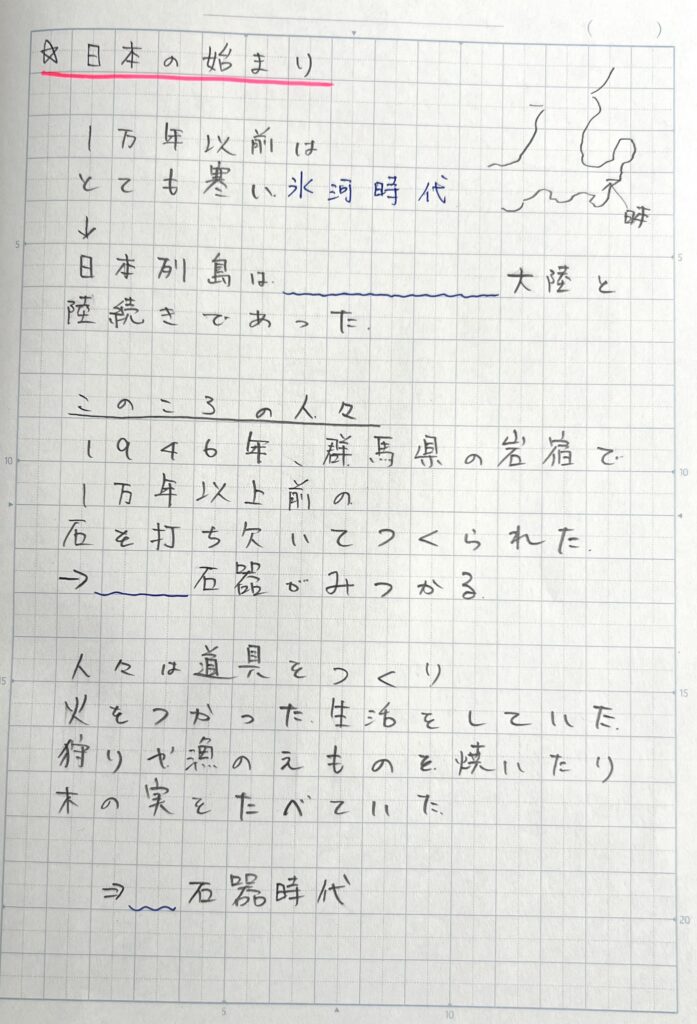 ☆ 日本の始まり
1万年以前は
とても寒い氷河時代
↓
日本
日本列島は＿＿＿＿＿大陸と
陸続きであった.
このころの人々
1946年、群馬県の岩宿で
1万年以上前の
石を打ち欠いてつくられた.
→＿＿石器がみつかる.
人々は道具をつくり
火をつかった生活をしていた.
狩りや漁のえものを焼いたり
木の実をたべていた.
⇒＿石器時代
5
10
15
20
5
10
5
10
15
20